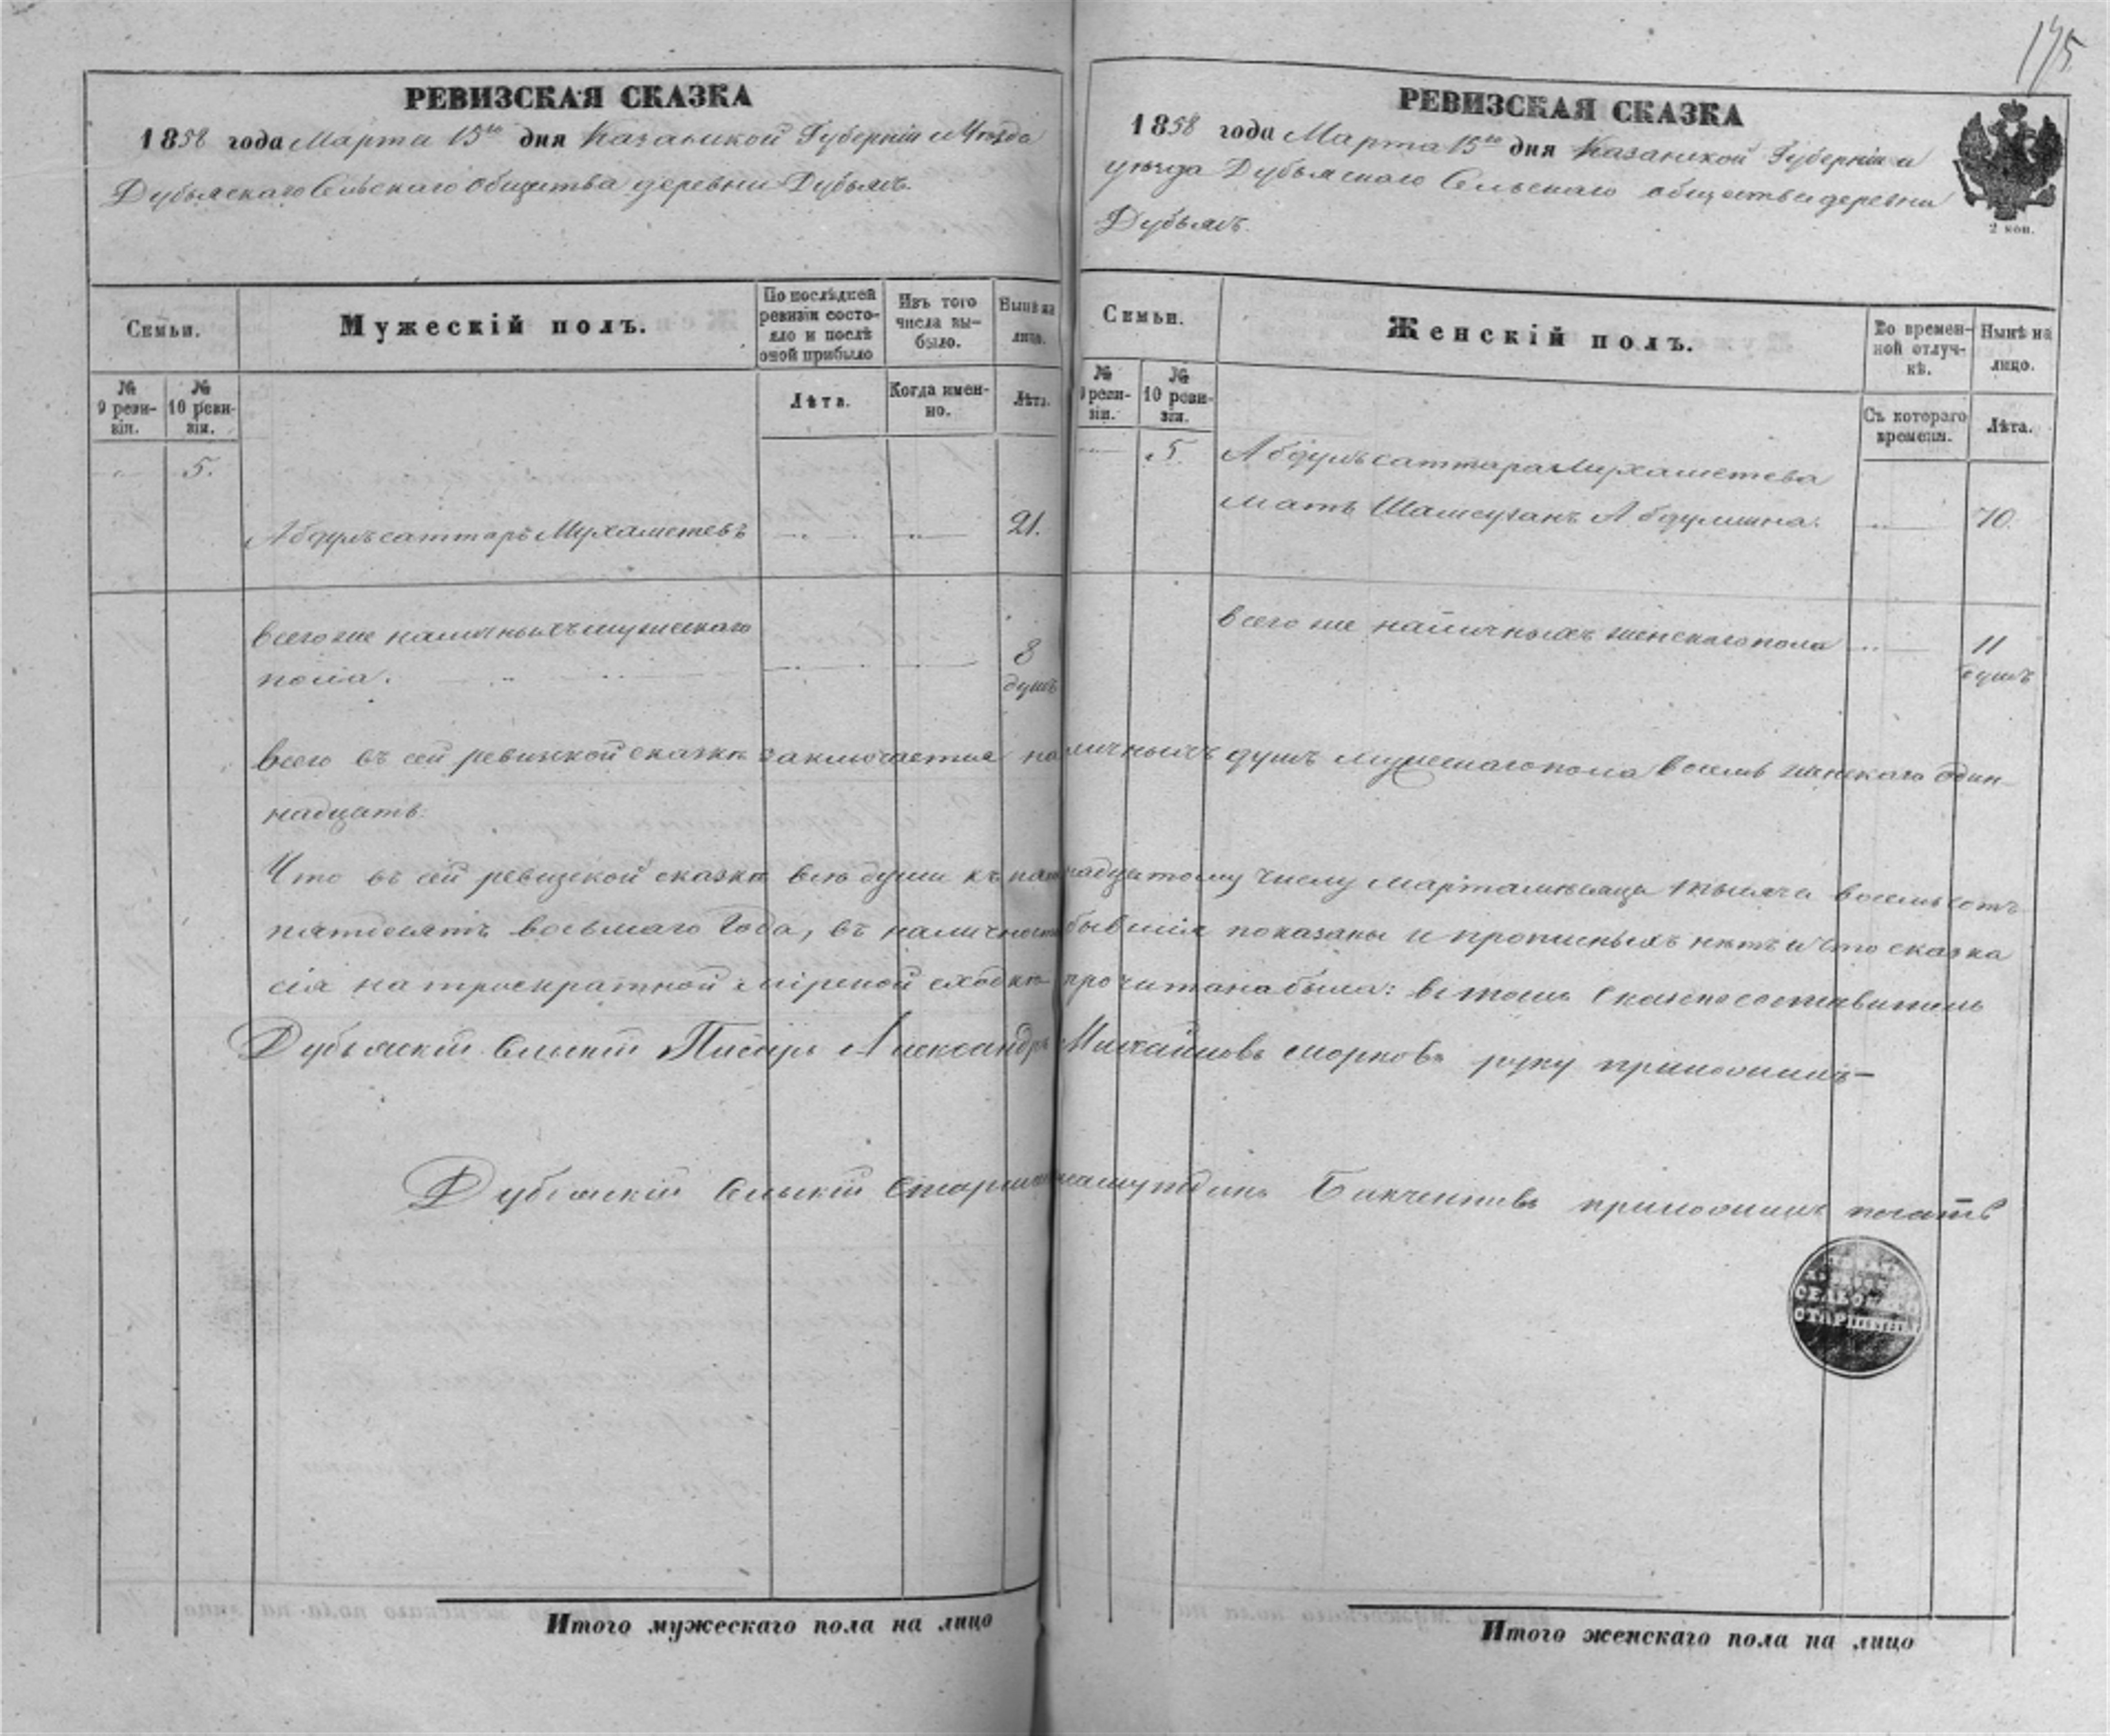 175
РЕВИЗСКАЯ СКАЗКА
1858 года Марта 15го дня Казанской Губерніи и Уезда
Дубьяскаго Сельскаго общества деревни Дубьязъ.
Семьи.
Мужескій полъ.
По послѣдней ревизіи состояло и послѣ оной прибыло
Изъ того числа выбыло.
Нынѣ на лицо.
№ 9 ревизіи.
№ 10 ревизіи.
Лѣта.
Когда именно.
Лѣта.
5.
Абдулъсаттаръ Мухаметевъ 21.
всего же наличныхъ мужескаго
пола. 8
душъ
РЕВИЗСКАЯ СКАЗКА
1858 года Марта 15го дня Казанской Губерніи и
уезда Дубьяскаго Сельскаго общества деревни
Дубьязъ.
2 коп.
Семьи.
Женскій полъ.
Во временной отлучкѣ.
Нынѣ на лицо.
№ 9 ревизіи.
№ 10 ревизіи.
Съ котораго времени.
Лѣта.
5. Абдулъсаттара Мухаметева
мать Шамсузанъ Абдулмина. 70.
всего же наличныхъ женскаго пола 11
душъ
всего въ сей ревизской сказкѣ заключается наличныхъ душъ мужескаго пола восемь женскаго один-
надцать.
Что въ сей ревизской сказкѣ всѣ души къ пятнадцатому числу марта мѣсяца тысяча восемьсотъ
пятдесятъ восьмаго Года, въ наличности бывшія показаны и прописныхъ нѣтъ и что сказка
сія на троекратной мірской сходкѣ прочитана была: въ томъ Сказкосоставитель
Дубьяскій Сельскій Писарь Александръ Михайловъ Морковъ руку приложилъ—
Дубьяскій Сельскій Старшина Бикчентевъ приложилъ печать
СЕЛЬСКАГО
СТАРШИНЫ
Итого мужескаго пола на лицо
Итого женскаго пола на лицо